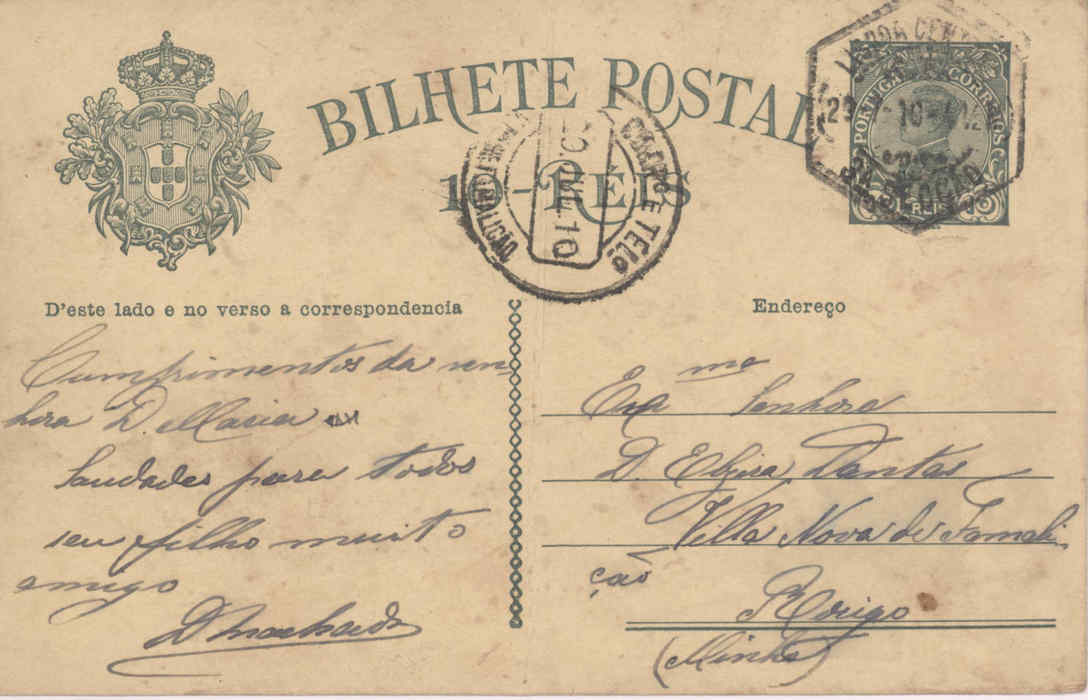 BILHETE POSTAL
10 - REIS
PORTUGAL CORREIOS
LISBOA CENTRAL
3ª SECÇÃO
CORRº E TELº
10
D'este lado e no verso a correspondencia
Endereço
Cumprimentos da sen
hora D. Maria
Saudades para todos
seu filho muito
amigo
DMachado
Exma Senhora
D. Elzira Dantas
Villa Nova de Famali
ção
(Minho)